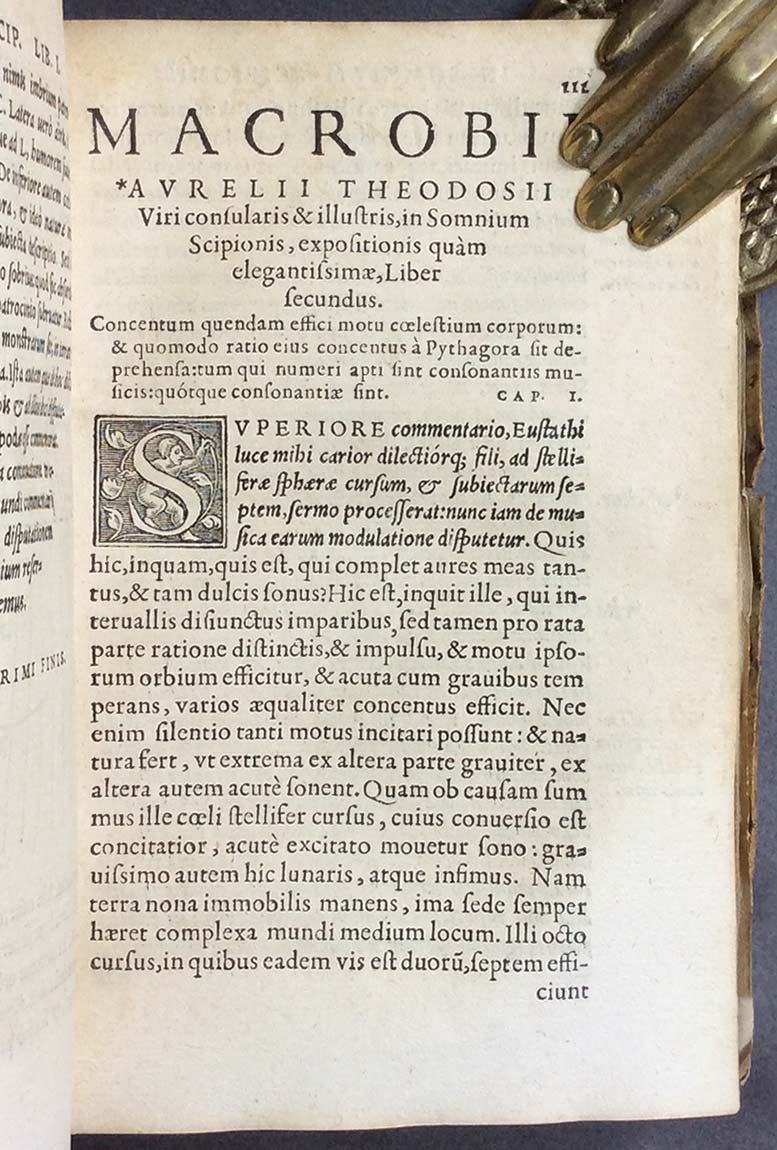 CIP. LIB. I.
nimis imbrium
C. Latera uerò
ue ad L, humorem
De inferiore autem
ora, & ideo natura
subiecta descriptio.
o sobrius: quod sic
patrocinio
monstrarum sic, in
a. Ista autem quæ
disputationem
ium reser-
emus.
RIMI FINIS.
111
MACROBII
*AVRELII THEODOSII
Viri conſularis & illuſtris, in Somnium
Scipionis, expoſitionis quàm
elegantiſsimæ, Liber
ſecundus.
Concentum quendam effici motu cœleſtium corporum:
& quomodo ratio eius concentus à Pythagora ſit de-
prehenſa: tum qui numeri apti ſint conſonantiis mu-
ſicis: quótque conſonantiæ ſint. CAP. I.
SVPERIORE commentario, Euſtathi
luce mihi carior dilectiórq; fili, ad ſtelli-
feræ ſphæræ curſum, & ſubiectarum ſe-
ptem, ſermo proceſſerat: nunc iam de mu-
ſica earum modulatione diſputetur. Quis
hic, inquam, quis eſt, qui complet aures meas tan-
tus, & tam dulcis ſonus? Hic eſt, inquit ille, qui in-
teruallis diſiunctus imparibus, ſed tamen pro rata
parte ratione diſtinctis, & impulſu, & motu ipſo-
rum orbium efficitur, & acuta cum grauibus tem
perans, varios æqualiter concentus efficit. Nec
enim ſilentio tanti motus incitari poſſunt: & na-
tura fert, vt extrema ex altera parte grauiter, ex
altera autem acutè ſonent. Quam ob cauſam ſum
mus ille cœli ſtellifer curſus, cuius conuerſio eſt
concitatior, acutè excitato mouetur ſono: gra-
uiſsimo autem hic lunaris, atque infimus. Nam
terra nona immobilis manens, ima ſede ſemper
hæret complexa mundi medium locum. Illi octo
curſus, in quibus eadem vis eſt duorũ, ſeptem effi-
ciunt